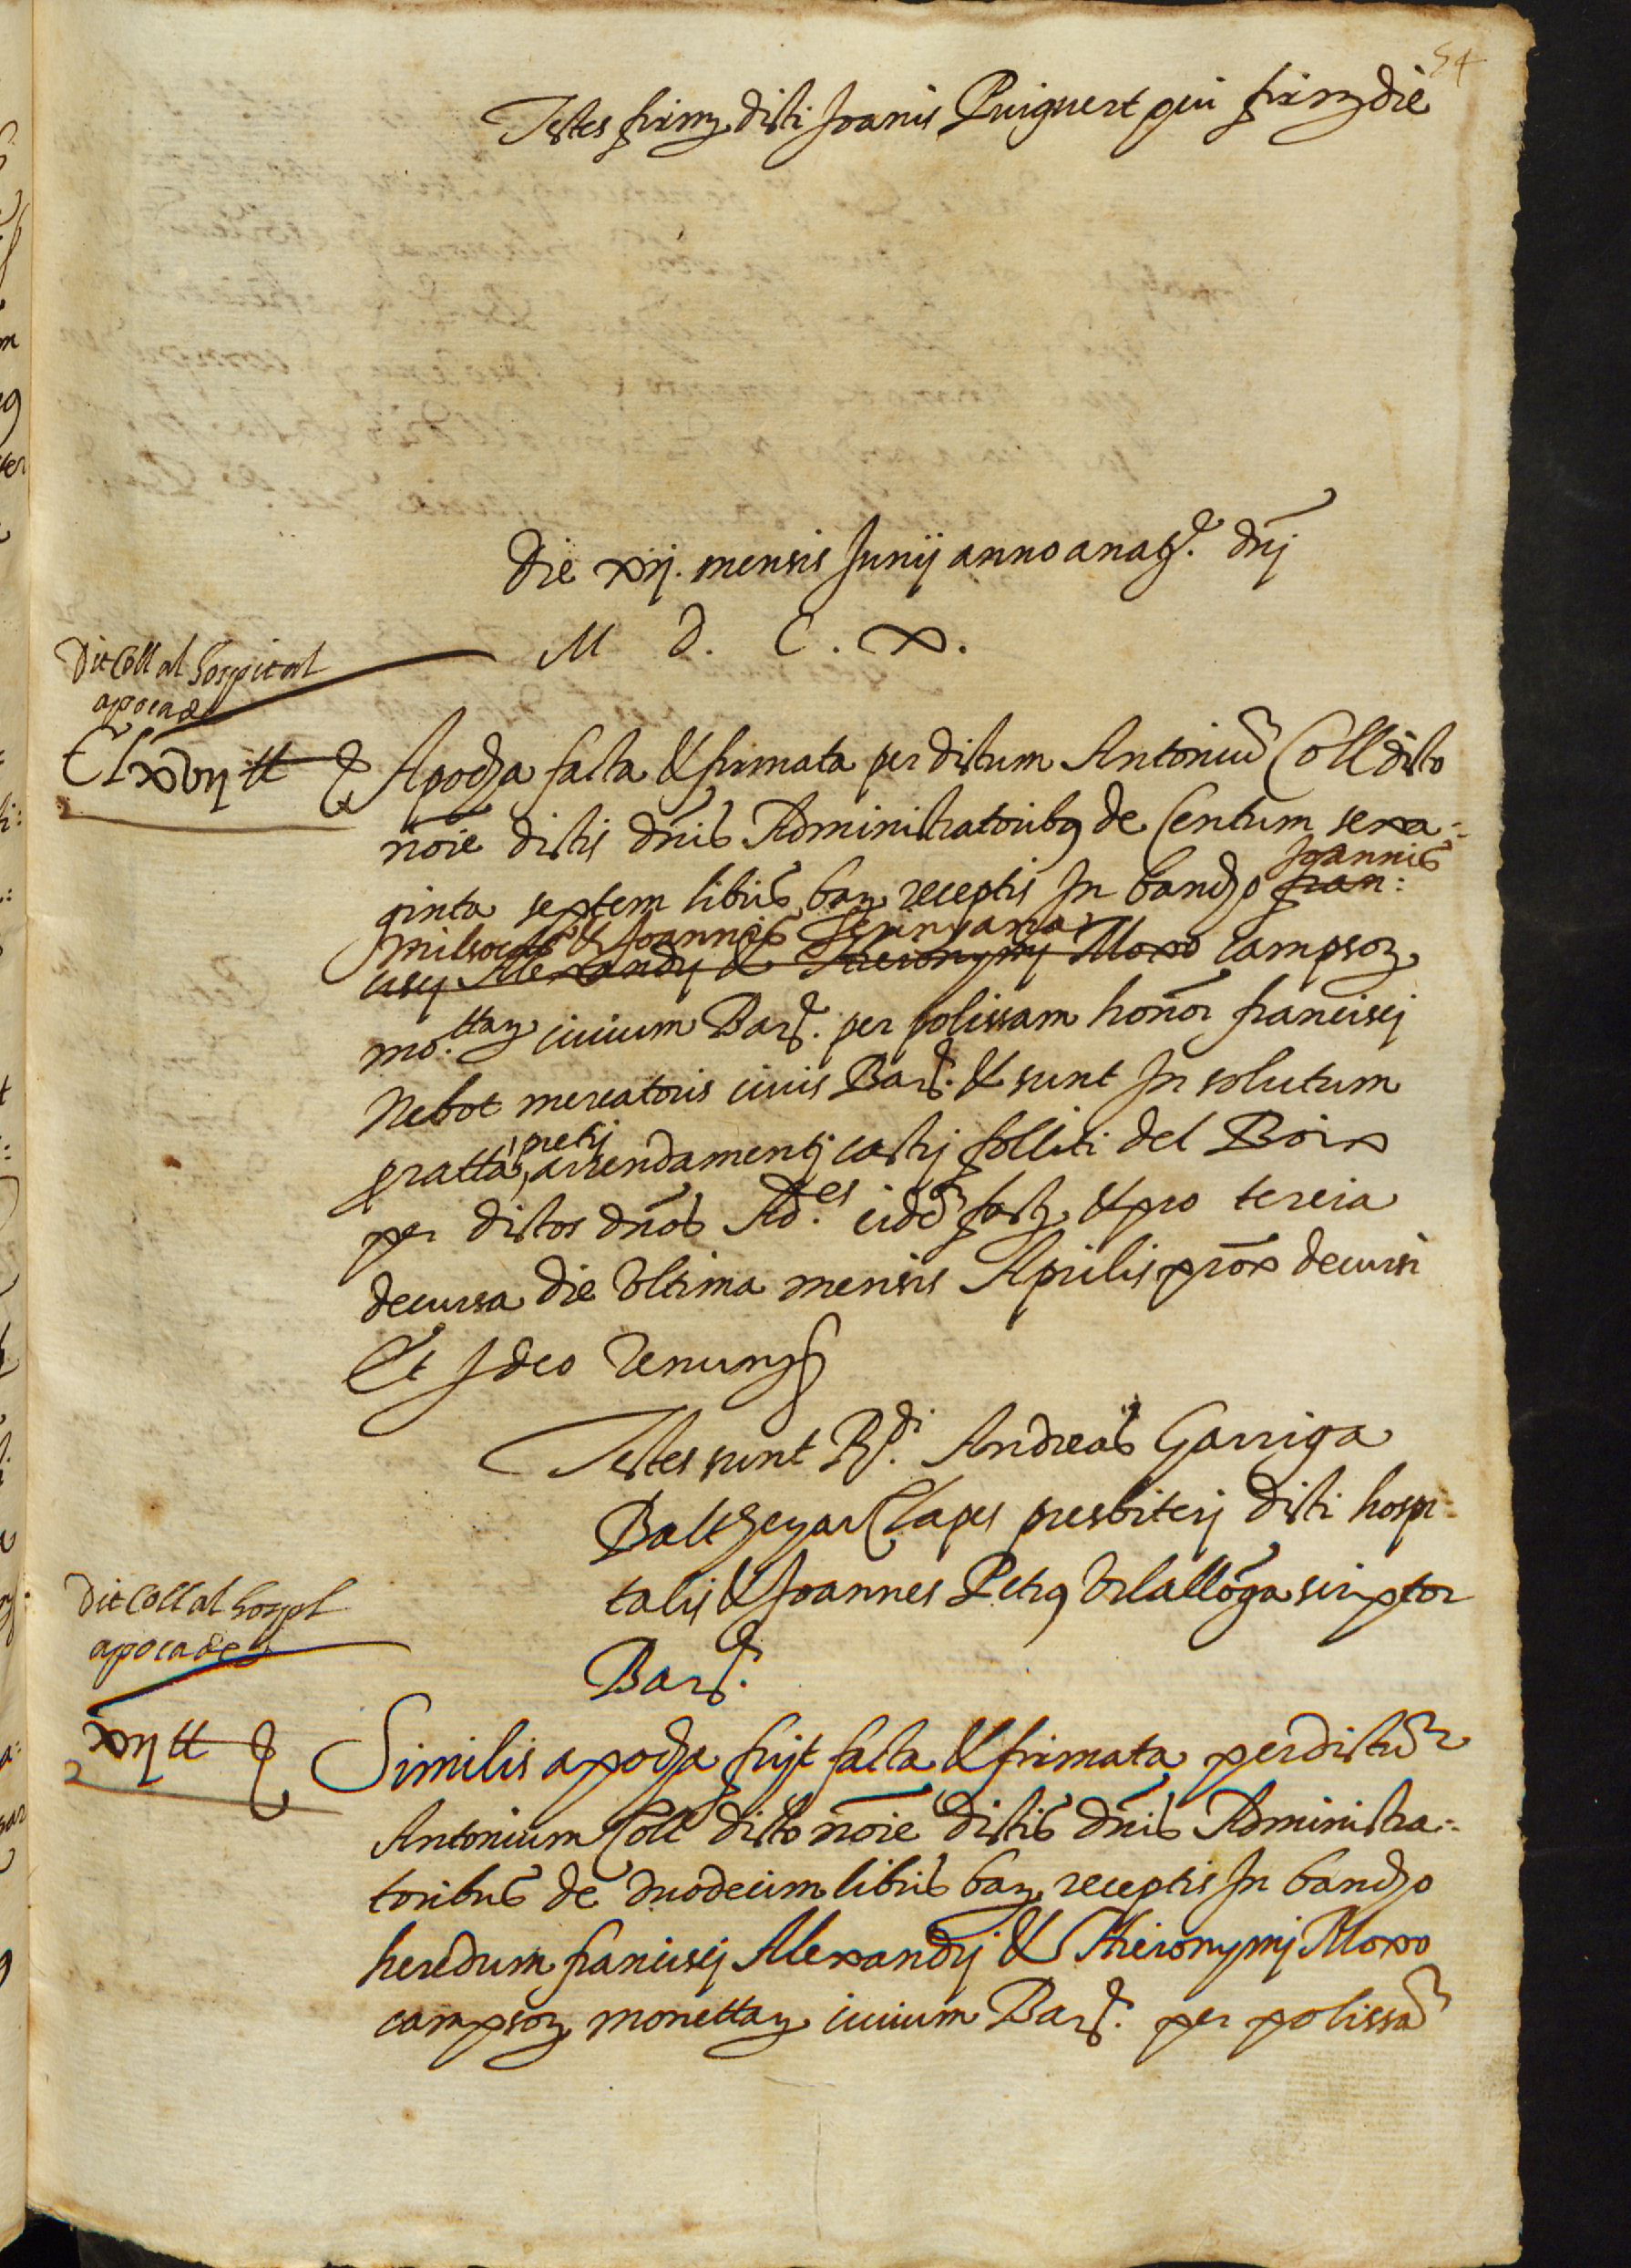 54
Testes firmę dicti Joanis Puigvert qui firmę die
Die xij. mensis Junij anno a natte. dnj
M D. C. X.
Dit Coll al hospital
apoca de
Clxvij ₶
Apocha facta & firmata per dictum Antoniu Coll dicto
noie dictis dnis Administratoribꝰ de Centum sexa=
ginta septem libris barę receptis In bancho Joannis fran=
& Joannes
cisci Alexandrj & Hieronymj Moxo campsorꝫ
mo.ttarꝫ ciuium Barᵉ. per polissam honor francisci
Nebot mercatoris ciuis Barᵉ. & sunt In solutum
pretij
arrendamentj castrj folliti del Boix
per dictos dnos Ad.es eidem factꝫ & pro tercia
decursa die Vltima mensis Aprilis prox decursi
Et Ideo Renuncs
Testes sunt Rdi. Andreas Garriga
Balthezar Clapes presbiterj dicti hospi=
talis & Joannes Petrꝰ Vilallonga scriptor
Barᵉ.
Dit Coll al hospl
apoca de
xij ₶
Similis apocha fuit facta & firmata per dictu
Antonium Coll dicto noie dictis dnis Administra=
toribus de duodecim libris barꝫ receptis In bancho
heredum francisci Alexandrj & Hieronymj Moxo
campsorꝫ monettarꝫ ciuium Barᵉ. per polissa